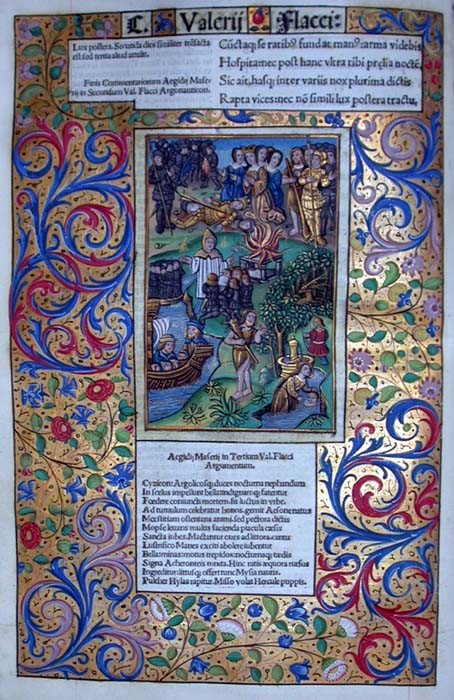 C. Valerij Flacci:
Lux postera. Secunda dies similiter trãsacta
est sed tertia aliud attulit.
Finis Commentariorum Aegidij Mase-
rij in Secundum Val. Flacci Argonauticon.
Cũctaq; se ratibꝰ fundat manꝰ: arma videbis
Hospita: nec post hanc vltra tibi prelia noctẽ.
Sic ait. hasq; inter variis nox plurima dictis
Rapta vices: nec nõ simili lux postera tractu.
Aegidij Maserij in Tertium Val. Flacci
Argumentum.
Cyzicon: Argolicosq; duces nocturna nephandum
In scelus impellunt bella: indignataq; fatentur
Fœdere coniunctis mortem: fit luctus in vrbe.
Ad tumulum celebratur honos. gemit Aesonenatus
Mœstitiam ostentans animi. sed pectora dictis
Mopse leuans multis facienda piacula cæsis
Sancta iubes. Mactantur oues ad littora. cantu
Lustrifico Manes exciti abolere iubentur
Bella: minas: motus trepidos: nocturnaq; tædis
Signa Acheronteis iuncta. Hinc ratis æquora rursus
Ingreditur: littusq; offert tunc Mysia nautis.
Pulcher Hylas rapitur. Misso volat Hercule puppis.